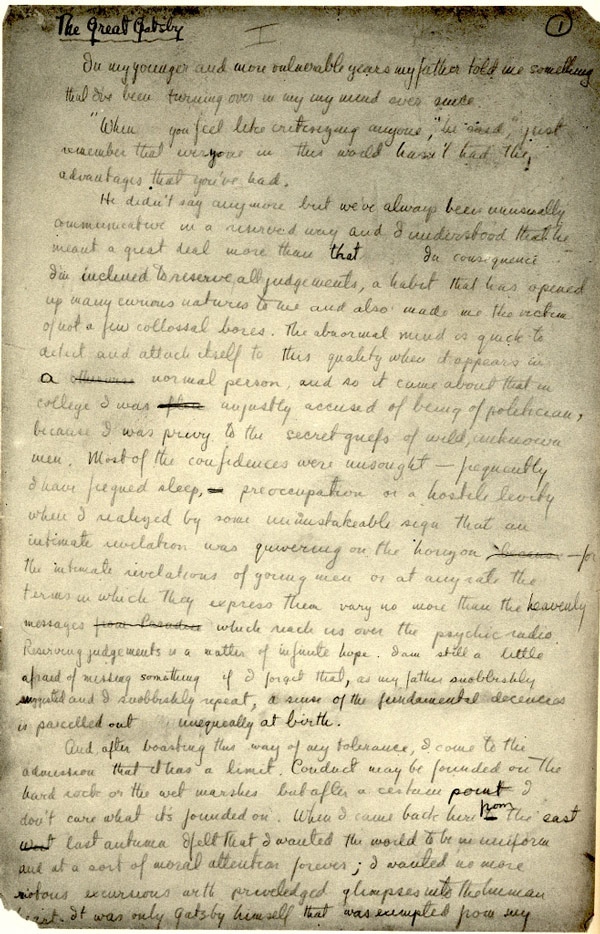 The Great Gatsby
I
1
In my younger and more vulnerable years my father told me something
that I've been turning over in my my mind ever since.
"When you feel like critisizing anyone," he said, "just
remember that everyone in this world hasn't had the
advantages that you've had.
He didn't say anymore but we've always been unusually
communicative in a reserved way and I understood that he
meant a great deal more than that. In consequence
I'm inclined to reserve all judgements, a habit that has opened
up many curious natures to me and also made me the victim
of not a few collossal bores. The abnormal mind is quick to
detect and attach itself to this quality when it appears in
a otherwise normal person, and so it came about that in
college I was unjustly accused of being of politician,
because I was privy to the secret griefs of wild, unknown
men. Most of the confidences were unsought — frequently
I have fiegned sleep, preoccupation or a hostile levity
when I realized by some unmistakeable sign that an
intimate revelation was quivering on the horizon — for
the intimate revelations of young men or at any rate the
terms in which they express them vary no more than the heavenly
messages from Pasadena which reach us over the psychic radio.
Reserving judgements is a matter of infinite hope. I am still a little
afraid of missing something if I forget that, as my father snobbishly
suggested and I snobbishly repeat, a sense of the fundamental decencies
is parcelled out unequally at birth.
And, after boasting this way of my tolerance, I come to the
admission that it has a limit. Conduct may be founded on the
hard rock or the wet marshes but after a certain point I
don't care what it's founded on. When I came back here from the east
last autumn I felt that I wanted the world to be in uniform
and at a sort of moral attention forever; I wanted no more
riotous excursions with priviledged glimpses into the human
heart. It was only Gatsby himself that was exempted from my